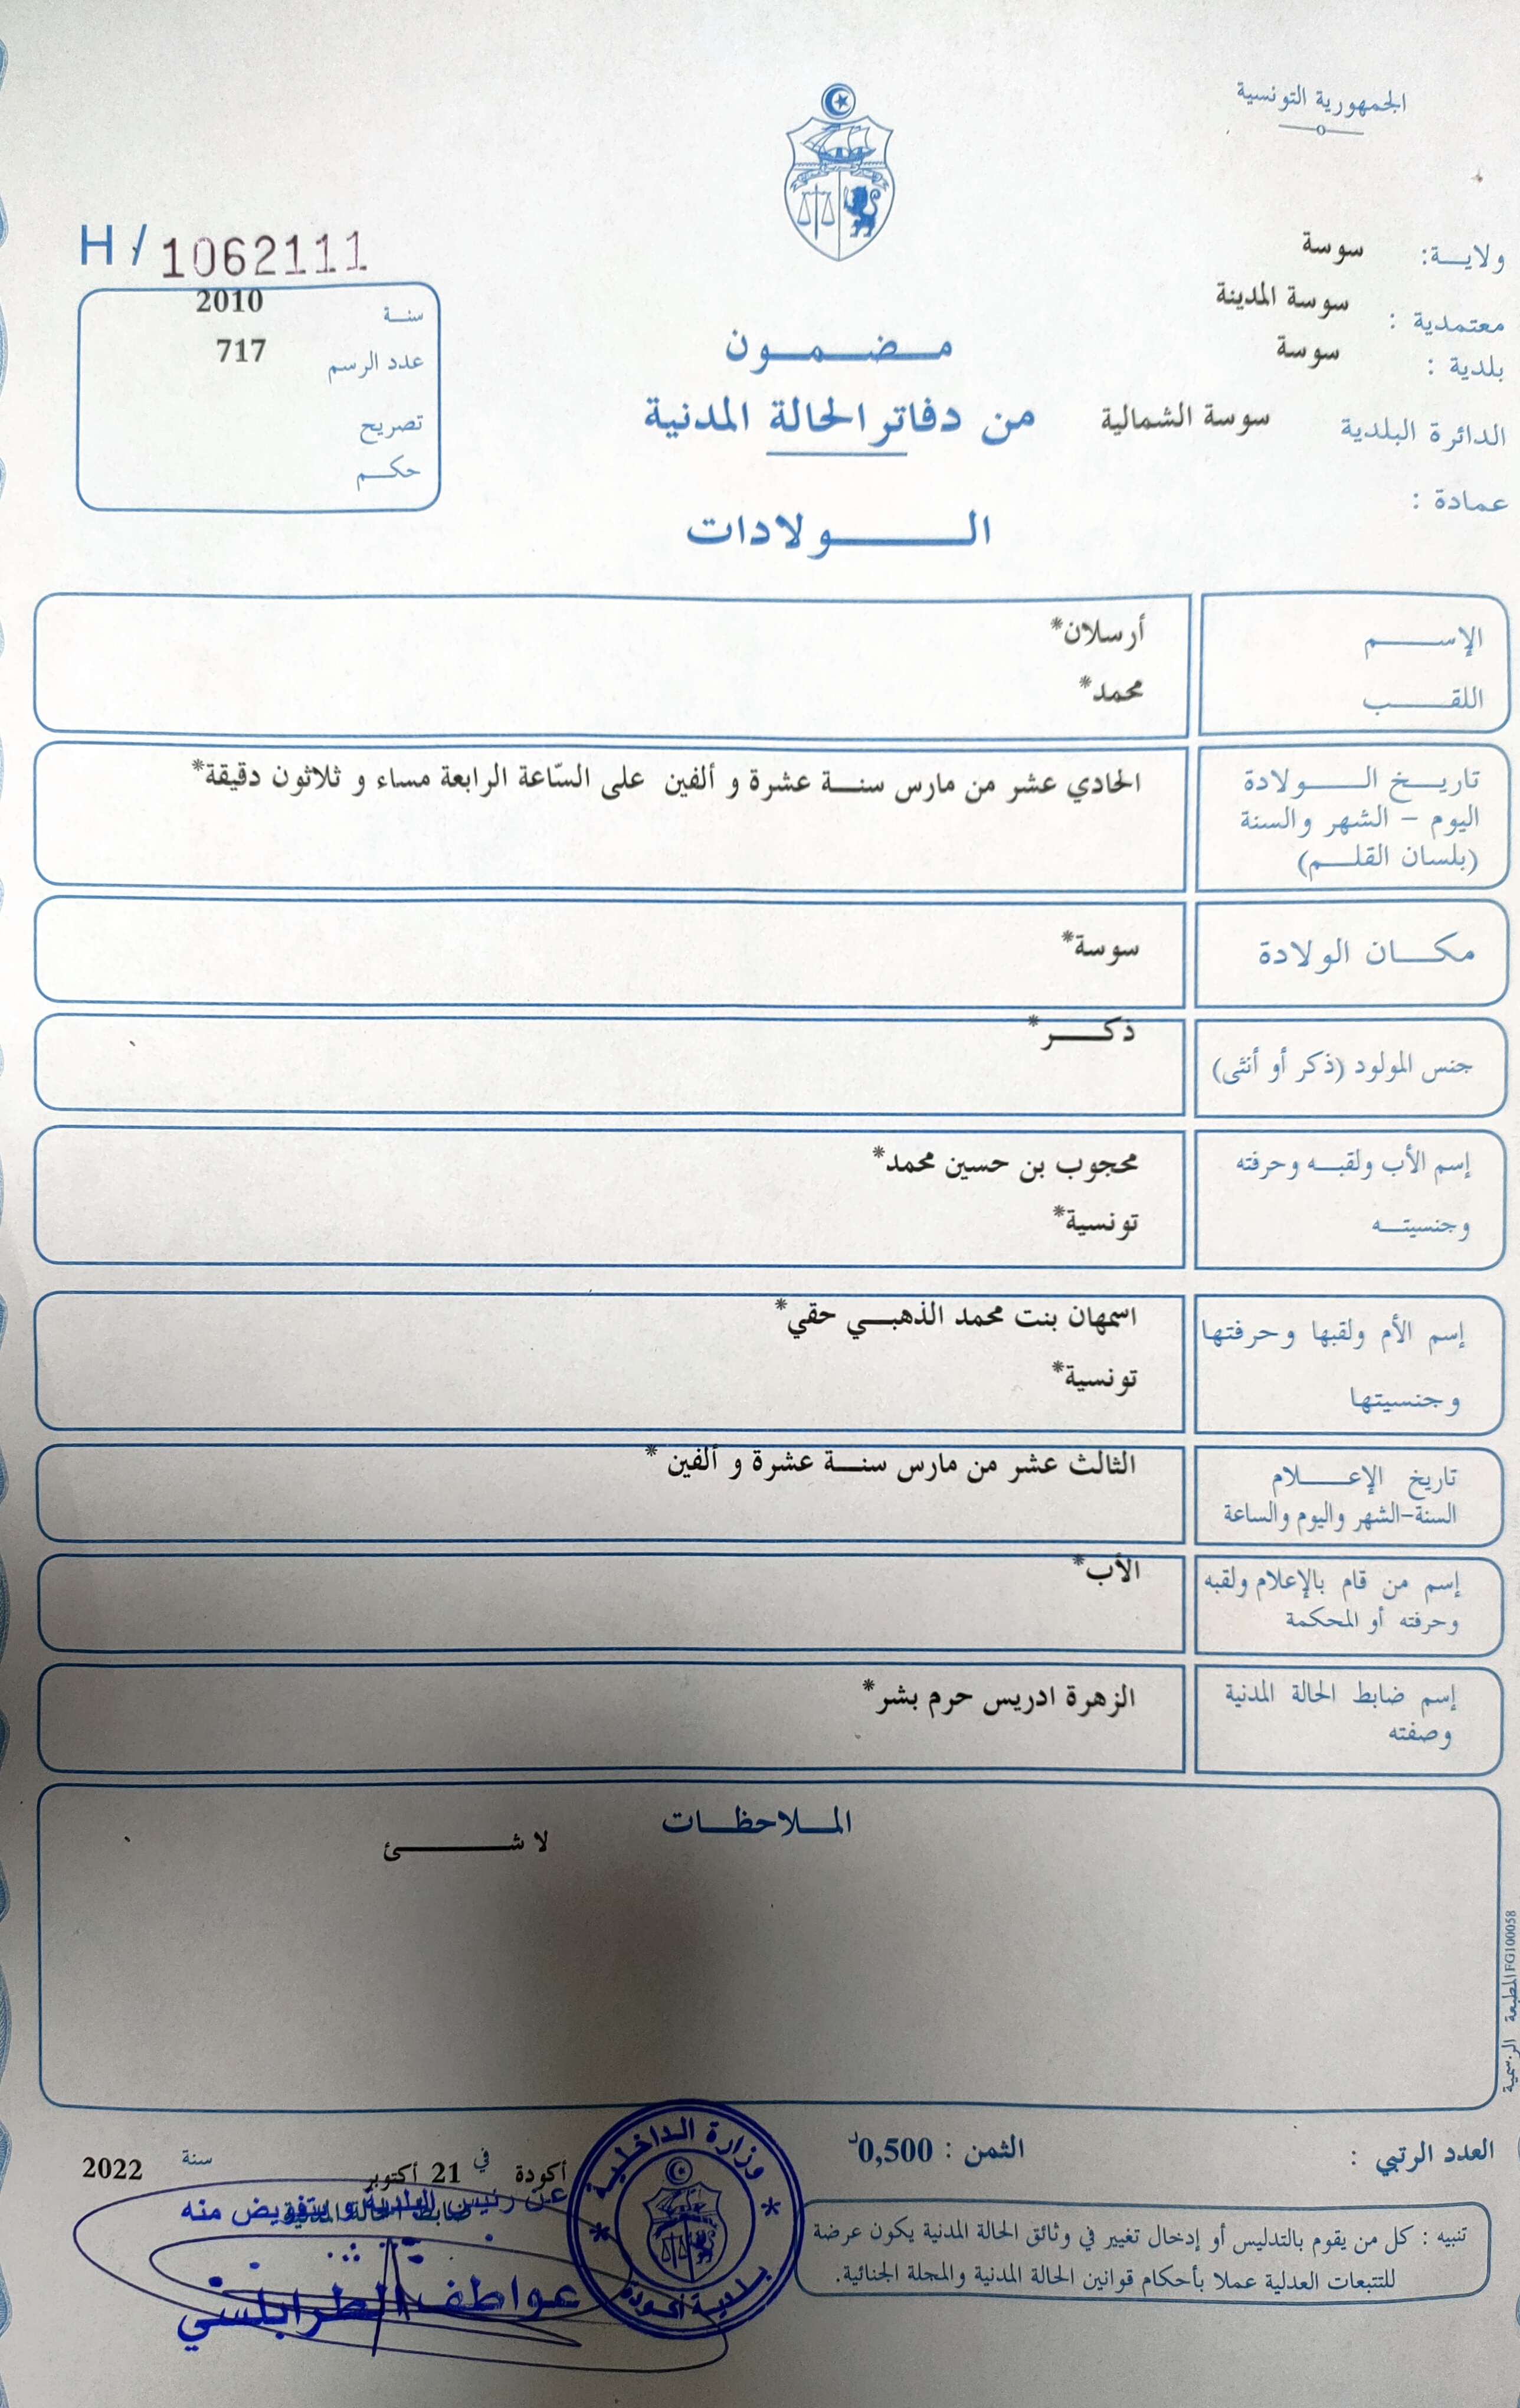 الجمهورية التونسية
ولايــة: سوسة
معتمدية : سوسة المدينة
بلدية : سوسة
الدائرة البلدية سوسة الشمالية
عمادة :
H / 1062111
سنـة 2010
عدد الرسم 717
تصريح
حكـم
مـضـمـون
من دفاتر الحالة المدنية
الــولادات
الإســم أرسلان*
اللقـب محمد*
تاريـخ الــولادة الحادي عشر من مارس سنـة عشرة و ألفين على السّاعة الرابعة مساء و ثلاثون دقيقة*
اليوم – الشهر والسنة
(بلسان القلـم)
مكـان الولادة سوسة*
جنس المولود (ذكر أو أنثى) ذكــر*
إسم الأب ولقبـه وحرفته محجوب بن حسين محمد*
وجنسيتـه تونسية*
إسم الأم ولقبها وحرفتها اسمهان بنت محمد الذهبـي حقي*
وجنسيتها تونسية*
تاريخ الإعــلام الثالث عشر من مارس سنـة عشرة و ألفين *
السنة-الشهر واليوم والساعة
إسم من قام بالإعلام ولقبه الأب*
وحرفته أو المحكمة
إسم ضابط الحالة المدنية الزهرة ادريس حرم بشر*
وصفته
المـلاحظـات
لا شــئ
المطبعة الرسمية FG100058
العدد الرتبي :
الثمن : 0,500د
أكودة في 21 أكتوبر سنة 2022
ضابط الحالة المدنية
عن رئيس البلدية و بتفويض منه
عواطف الطرابلسي
وزارة الداخلية
بلدية أكودة
تنبيه : كل من يقوم بالتدليس أو إدخال تغيير في وثائق الحالة المدنية يكون عرضة
للتتبعات العدلية عملا بأحكام قوانين الحالة المدنية والمجلة الجنائية.